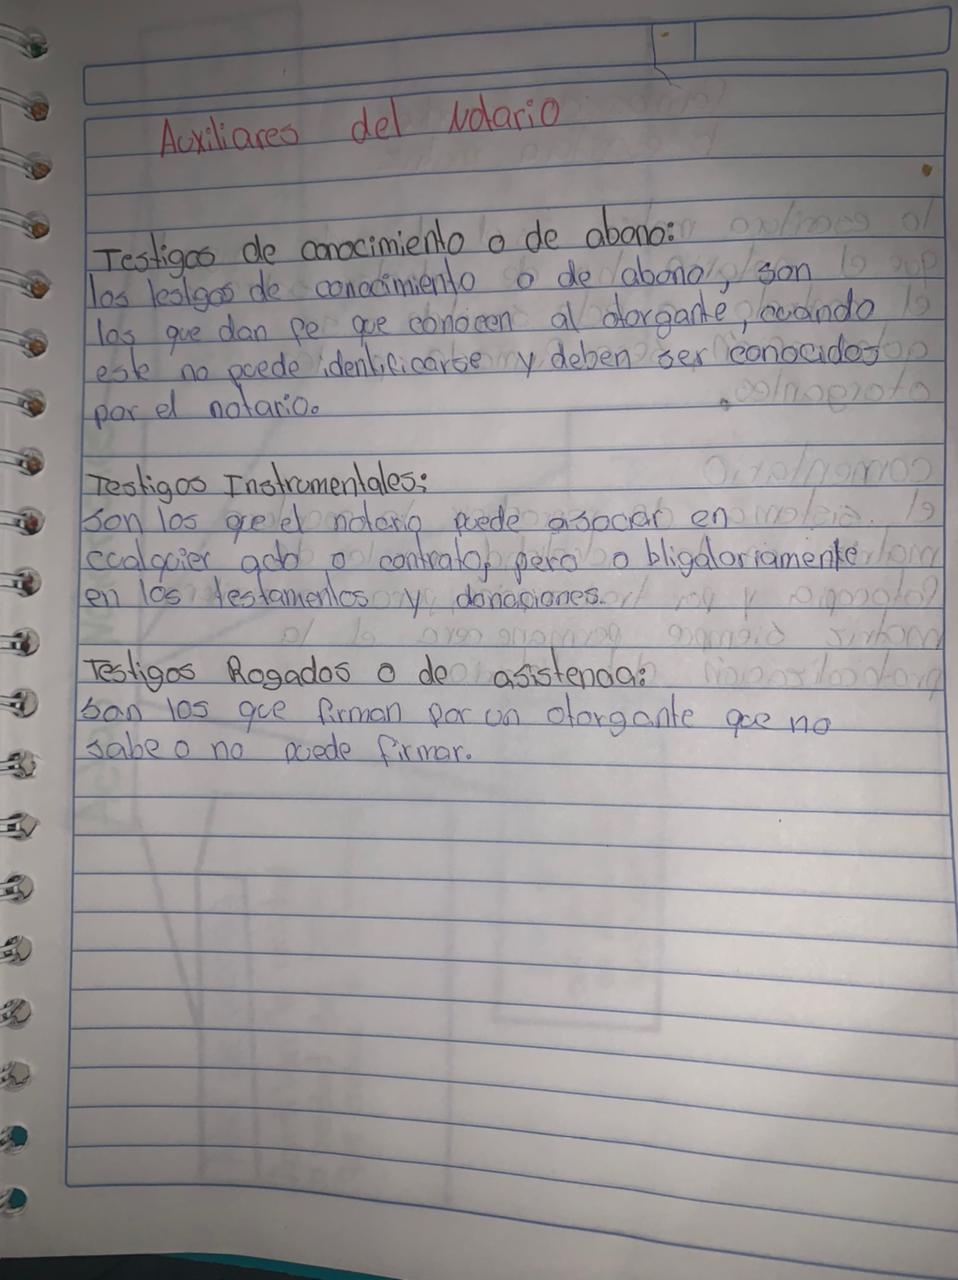 Auxiliares del Notario
Testigos de conocimiento o de abono:
los testigos de conocimiento o de abono, son
los que dan fe que conocen al otorgante, cuando
este no puede identificarse y deben ser conocidos
por el notario.
Testigos Instrumentales:
son los que el notario puede asociar en
cualquier acto o contrato, pero obligatoriamente
en los testamentos y donaciones.
Testigos Rogados o de asistencia:
son los que firman por un otorgante que no
sabe o no puede firmar.